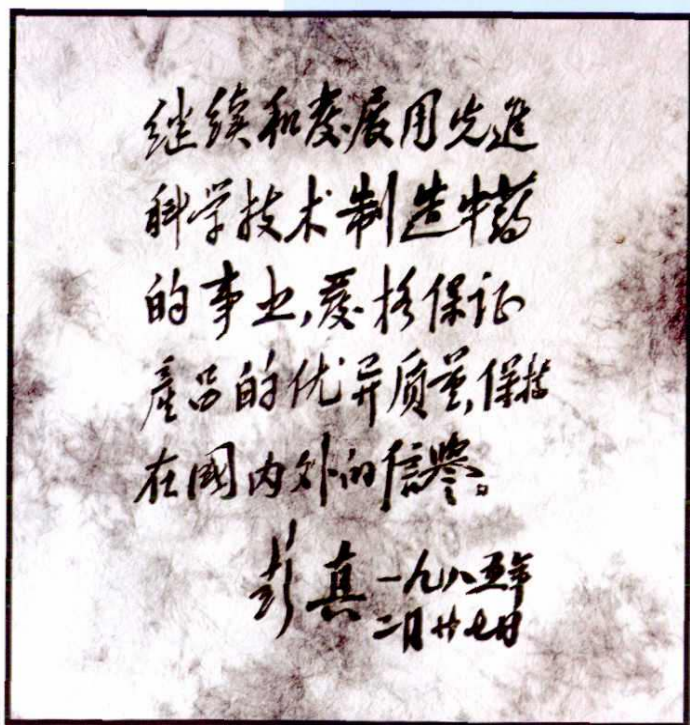 继续和发展用先进
科学技术制造中药
的事业,严格保证
產品的优异质量,保持
在國内外的信誉。
彭真 一九八五年
二月廿七日